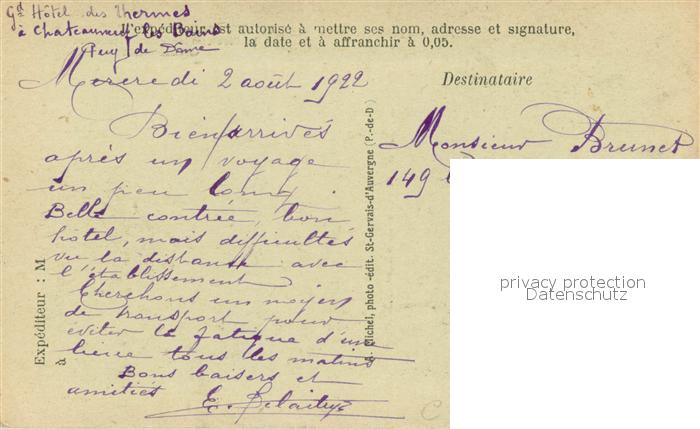 Gd Hôtel des Thermes
à Chateauneuf les Bains
Puy de Dôme
L'expéditeur est autorisé à mettre ses nom, adresse et signature,
la date et à affranchir à 0,05.
Mercredi 2 août 1922
Bien arrivés
après un voyage
un peu long.
Belle contrée, bon
hôtel, mais difficultés
vu la distance avec
l'établissement.
Cherchons un moyen
de transport pour
eviter la fatigue d'une
lieue tous les matins
Bons baisers et
amitiés
E.
Expéditeur : M
à
Michel, photo-édit. St-Gervais-d'Auvergne (P.-de-D)
Destinataire
Monsieur Brunet
149
privacy protection
Datenschutz
C